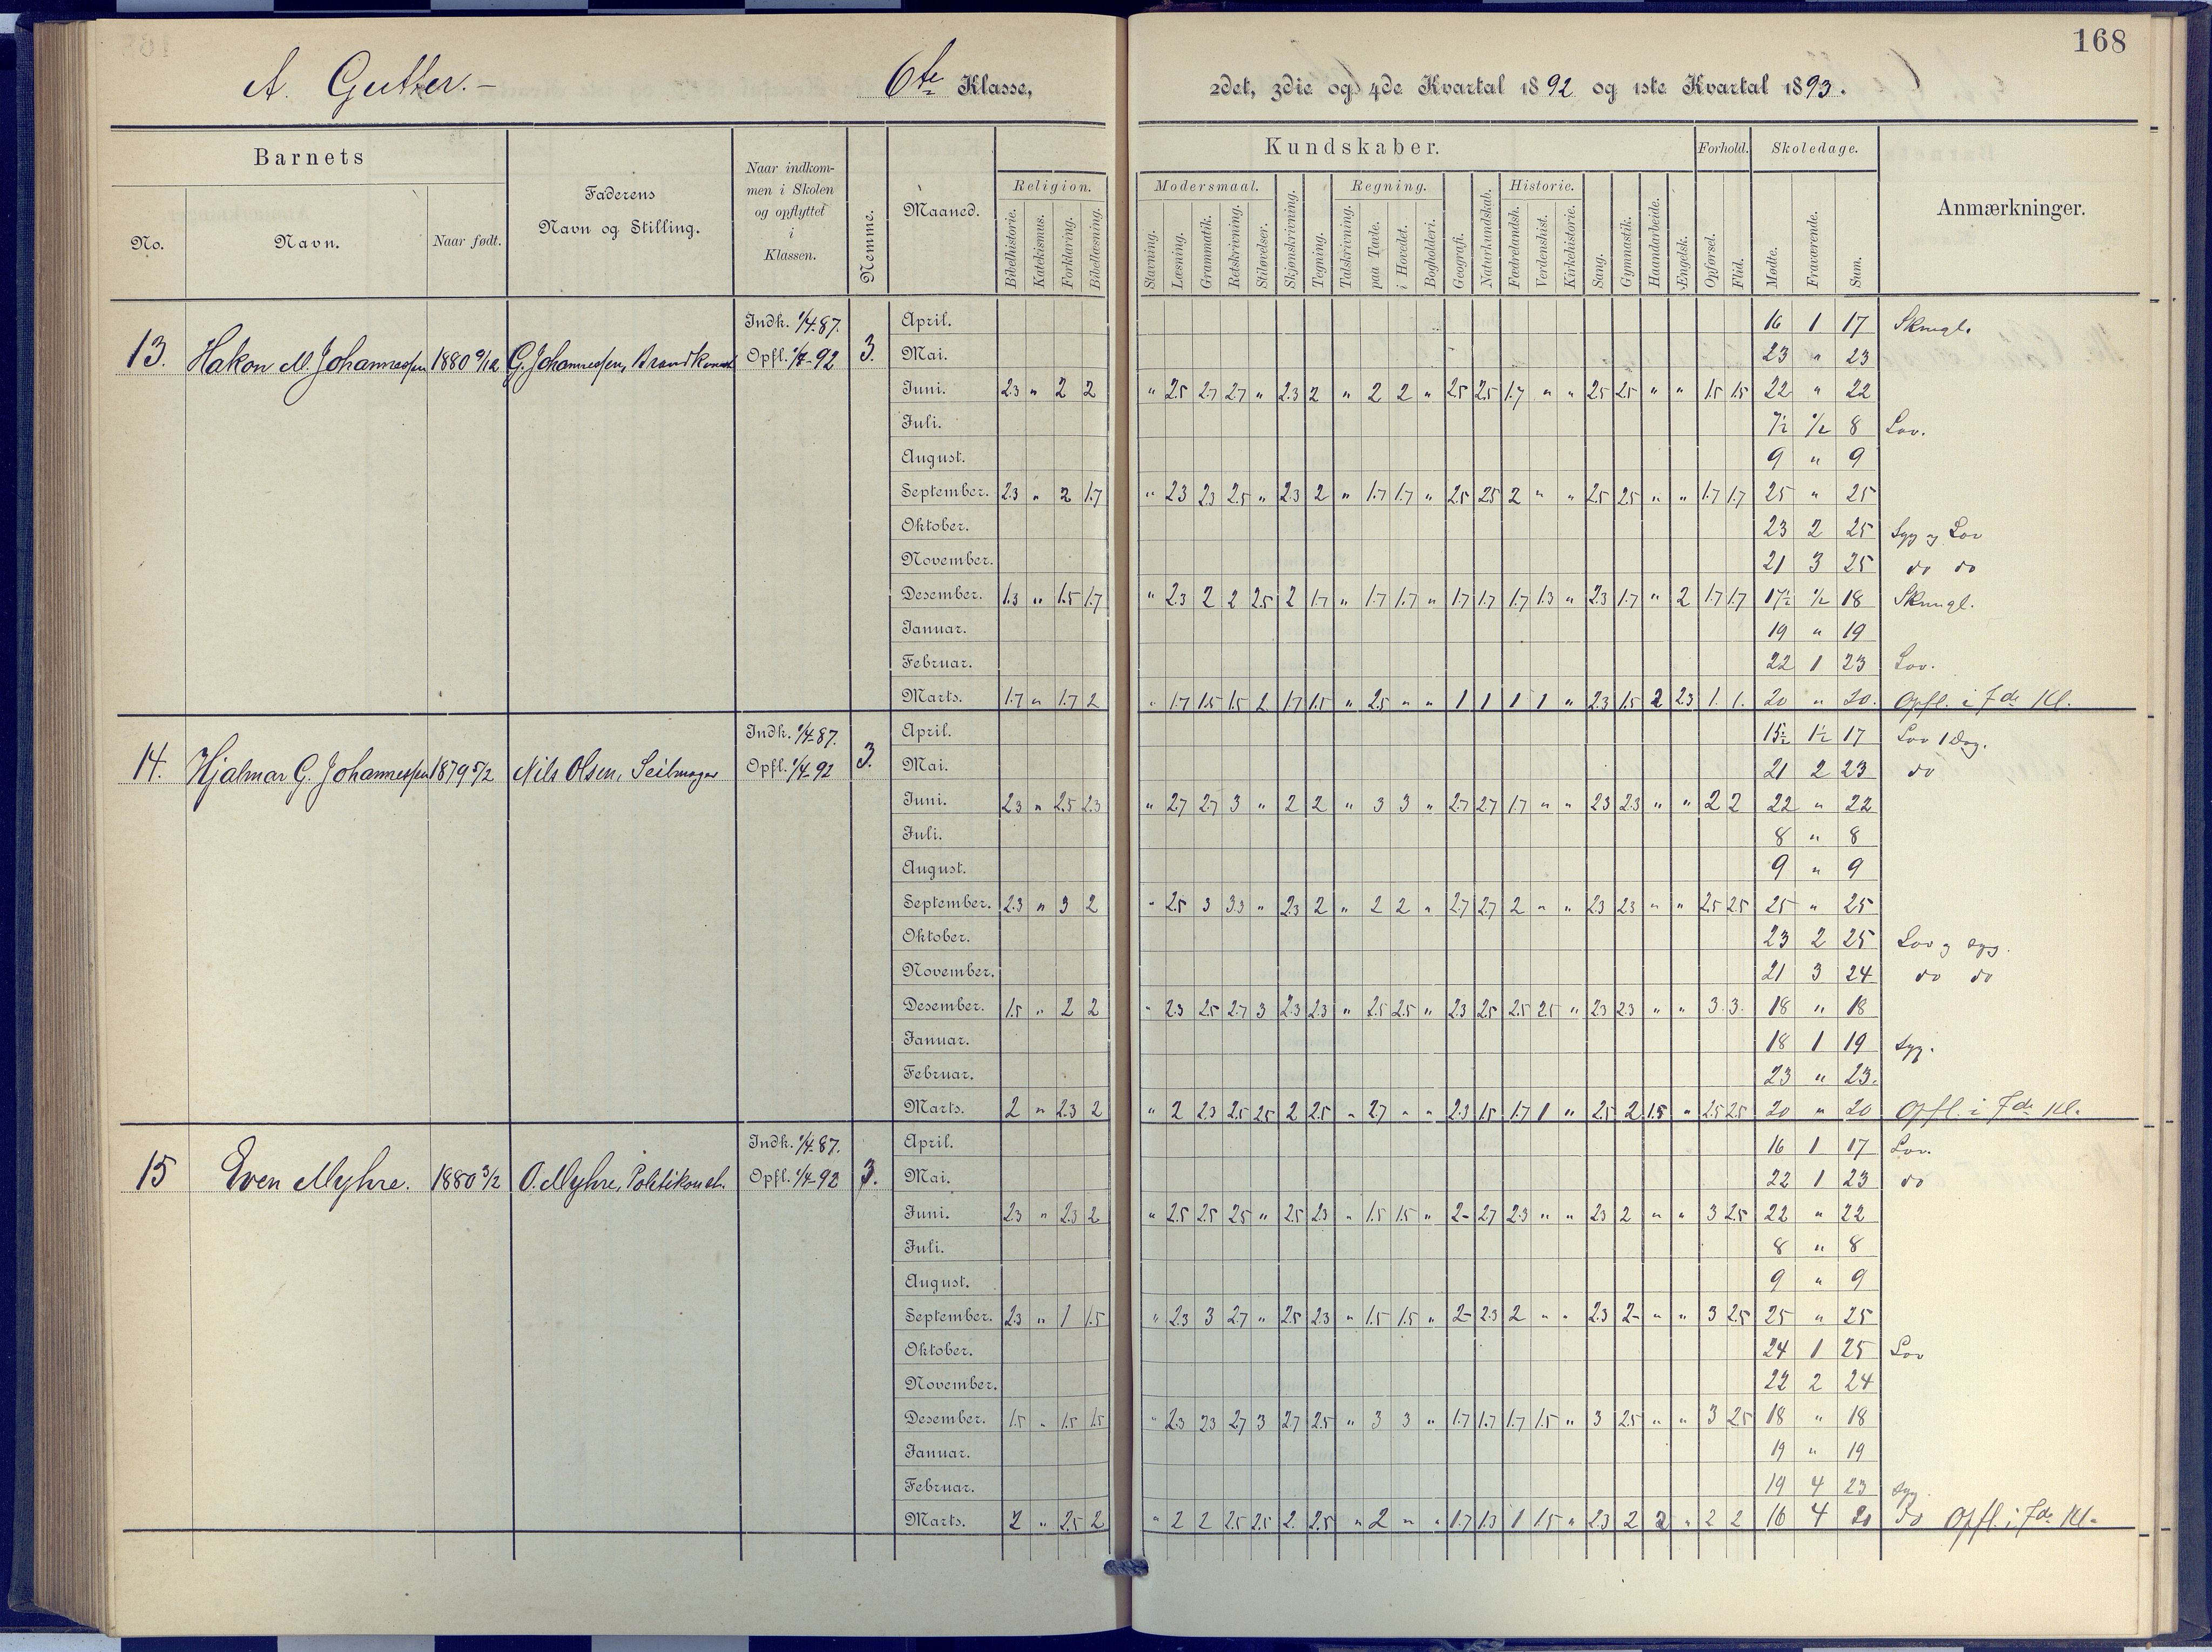 168
A. Gutter.-
6te Klasse,
2det, 3die og 4de Kvartal 1892 og 1ste Kvartal 1893.
Barnets
No.
Navn.
Naar født.
Faderens
Navn og Stilling.
Naar indkom-
men i Skolen
og opflyttet
i
Klassen.
Nemme.
Maaned.
Kundskaber.
Religion.
Bibelhistorie. Katekismus. Forklaring. Bibellæsning.
Modersmaal.
Stavning. Læsning. Grammatik. Retskrivning. Stiløvelser.
Skjønskrivning. Tegning.
Regning.
Talskrivning. paa Tavle. i Hovedet. Bogholderi.
Geografi. Naturkundskab.
Historie.
Fædrelandsh. Verdenshist. Kirkehistorie.
Sang. Gymnastik. Haandarbeide. Engelsk.
Forhold.
Opførsel. Flid.
Skoledage.
Mødte. Fraværende. Sum.
Anmærkninger.
13. Hakon M. Johannessen 1880 9/12 G. Johannessen, Brandkonst Indk. 1/4.87. Opfl. 1/4-92 3.
April. 16 1 17 Skrugl.
Mai. 23 " 23
Juni. 2.3 " 2 2 " 2.5 2.7 2.7 " 2.3 2 " 2 2 " 2.5 2.5 1.7 " " 2.5 2.5 " " 1.5 1.5 22 " 22
Juli. 7½ ½ 8 Lov.
August. 9 " 9
September. 2.3 " 2 1.7 " 2.3 2.3 2.5 " 2.3 2 " 1.7 1.7 " 2.5 2.5 2 " " 2.5 2.5 " " 1.7 1.7 25 " 25
Oktober. 23 2 25 Syg og Lov
November. 21 3 25 do do
Desember. 1.3 " 1.5 1.7 " 2.3 2 2 2.5 2 1.7 " 1.7 1.7 " 1.7 1.7 1.7 1.3 " 2.3 1.7 " 2 1.7 1.7 17½ ½ 18 Skrugl.
Januar. 19 " 19
Februar. 22 1 23 Lov.
Marts. 1.7 " 1.7 2 " 1.7 1.5 1.5 2 1.7 1.5 " 2.5 " " 1 1 1 1 " 2.3 1.5 2 2.3 1. 1. 20 " 20. Opfl. i 7de Kl.
14. Hjalmar G. Johannessen 1879 5/2 Nils Olsen, Seilmager Indk. 1/4-87. Opfl. 1/4-92 3.
April. 15½ 1½ 17 Lov 1 Dag.
Mai. 21 2 23 do
Juni. 2.3 " 2.5 2.3 " 2.7 2.7 3 " 2 2 " 3 3 " 2.7 2.7 1.7 " " 2.3 2.3 " " 2 2 22 " 22
Juli. 8 " 8
August. 9 " 9
September. 2.3 " 3 2 " 2.5 3 3.3 " 2.3 2 " 2 2 " 2.7 2.7 2 " " 2.3 2.3 " " 2.5 2.5 25 " 25
Oktober. 23 2 25 Lov og syg.
November. 21 3 24 do do
Desember. 1.5 " 2 2 " 2.3 2.5 2.7 3 2.3 2.3 " 2.5 2.5 " 2.3 2.5 2.5 2.5 " 2.3 2.3 " " 3. 3. 18 " 18
Januar. 18 1 19 Syg.
Februar. 23 " 23.
Marts. 2 " 2.3 2 " 2 2.3 2.5 2.5 2 2.5 " 2.7 " " 2.3 1.5 1.7 1 " 2.5 2 1.5 " 2.5 2.5 20 " 20 Opfl. i 7de Kl.
15 Even Myhre. 1880 3/2 O. Myhre, Politikonst. Indk. 1/4-87. Opfl. 1/4-92 3.
April. 16 1 17 Lov.
Mai. 22 1 23 do
Juni. 2.3 " 2.3 2 " 2.5 2.5 2.5 " 2.5 2.3 " 1.5 1.5 " 2- 2.7 2.3 " " 2.3 2 " " 3 2.5 22 " 22
Juli. 8 " 8
August. 9 " 9
September. 2.3 " 1 1.5 " 2.3 3 2.7 " 2.5 2.3 " 1.5 1.5 " 2- 2.3 2 " " 2.3 2- " " 3 2.5 25 " 25
Oktober. 24 1 25 Lov
November. 22 2 24
Desember. 1.5 " 1.5 1.5 " 2.3 2.3 2.7 3 2.7 2.5 " 3 3 " 1.7 1.7 1.7 1.5 " 3 2.5 " " 3 2.5 18 " 18
Januar. 19 " 19
Februar. 19 4 23 Syg.
Marts. 2 " 2.5 2 " 2 2 2.5 2.5 2. 2.5 " 2 " " 1.7 1.3 1 1.5 " 2.3 2 2 " 2 2 16 4 20 do Opfl. i 7de Kl.